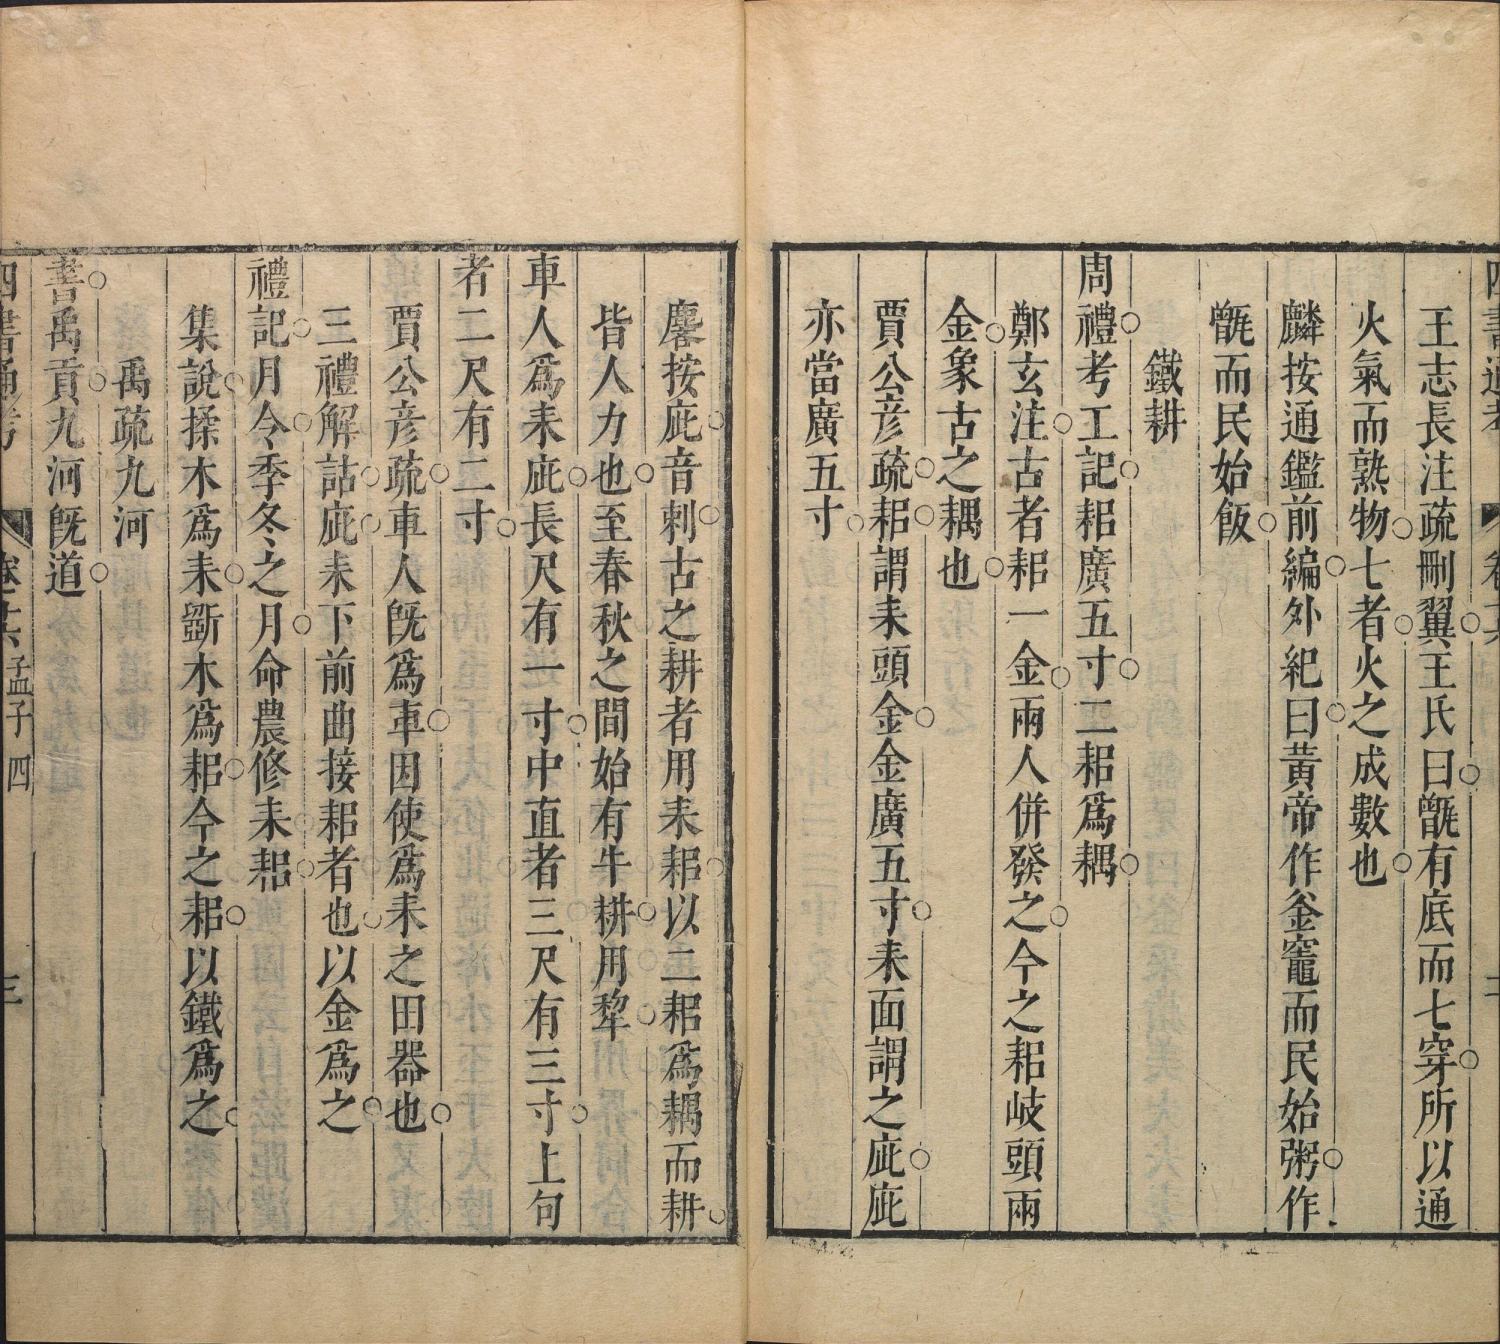 四書通考 卷十六 二
王志長注疏刪翼王氏曰甑有底而七穿所以通
火氣而熟物七者火之成數也
麟按通鑑前編外紀曰黃帝作釜竈而民始粥作
甑而民始飯
鐵耕
周禮考工記耜廣五寸二耜爲耦
鄭玄注古者耜一金兩人併發之今之耜岐頭兩
金象古之耦也
賈公彦疏耜謂耒頭金金廣五寸耒面謂之庛庛
亦當廣五寸
麐按庛音刺古之耕者用耒耜以二耜爲耦而耕
皆人力也至春秋之間始有牛耕用犂
車人爲耒庛長尺有一寸中直者三尺有三寸上句
者二尺有二寸
賈公彦疏車人旣爲車因使爲耒之田器也
三禮解詁庛耒下前曲接耜者也以金爲之
禮記月令季冬之月命農修耒耜
集說揉木爲耒斵木爲耜今之耜以鐵爲之
禹疏九河
書禹貢九河旣道
四書通考 卷之六 孟子四 三